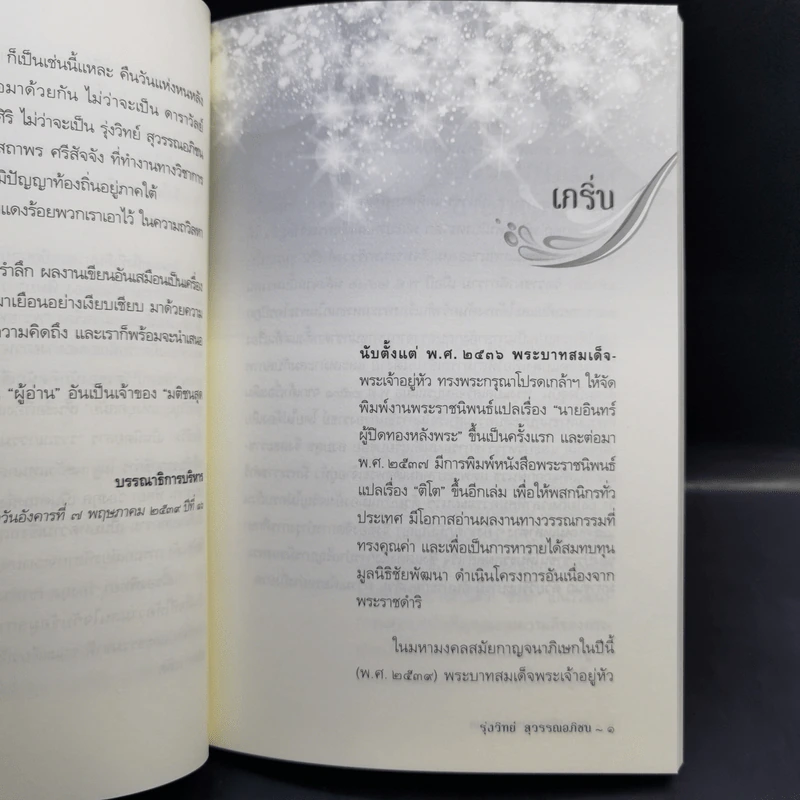 ก็เป็นเช่นนี้แหละ คืนวันแห่งหนหลัง
อมาด้วยกัน ไม่ว่าจะเป็น ดาราวัลย์
ศิริ ไม่ว่าจะเป็น รุ่งวิทย์ สุวรรณอภิชน
สถาพร ศรีสัจจัง ที่ทำงานทางวิชาการ
มิปัญญาท้องถิ่นอยู่ภาคใต้
แดงร้อยพวกเราเอาไว้ ในความถวิลหา
รำลึก ผลงานเขียนอันเสมือนเป็นเครื่อง
มาเยือนอย่างเงียบเชียบ มาด้วยความ
วามคิดถึง และเราก็พร้อมจะนำเสนอ
“ผู้อ่าน” อันเป็นเจ้าของ “มติชนสุด
บรรณาธิการบริหาร
วันอังคารที่ ๗ พฤษภาคม ๒๕๓๙ ปีที่
เกริ่น
นับตั้งแต่ พ.ศ. ๒๕๓๖ พระบาทสมเด็จ-
พระเจ้าอยู่หัว ทรงพระกรุณาโปรดเกล้าฯ ให้จัด
พิมพ์งานพระราชนิพนธ์แปลเรื่อง “นายอินทร์
ผู้ปิดทองหลังพระ” ขึ้นเป็นครั้งแรก และต่อมา
พ.ศ. ๒๕๓๗ มีการพิมพ์หนังสือพระราชนิพนธ์
แปลเรื่อง “ติโต” ขึ้นอีกเล่ม เพื่อให้พสกนิกรทั่ว
ประเทศ มีโอกาสอ่านผลงานทางวรรณกรรมที่
ทรงคุณค่า และเพื่อเป็นการหารายได้สมทบทุน
มูลนิธิชัยพัฒนา ดำเนินโครงการอันเนื่องจาก
พระราชดำริ
ในมหามงคลสมัยกาญจนาภิเษกในปีนี้
(พ.ศ. ๒๕๓๙) พระบาทสมเด็จพระเจ้าอยู่หัว
รุ่งวิทย์ สุวรรณอภิชน ~ ๑